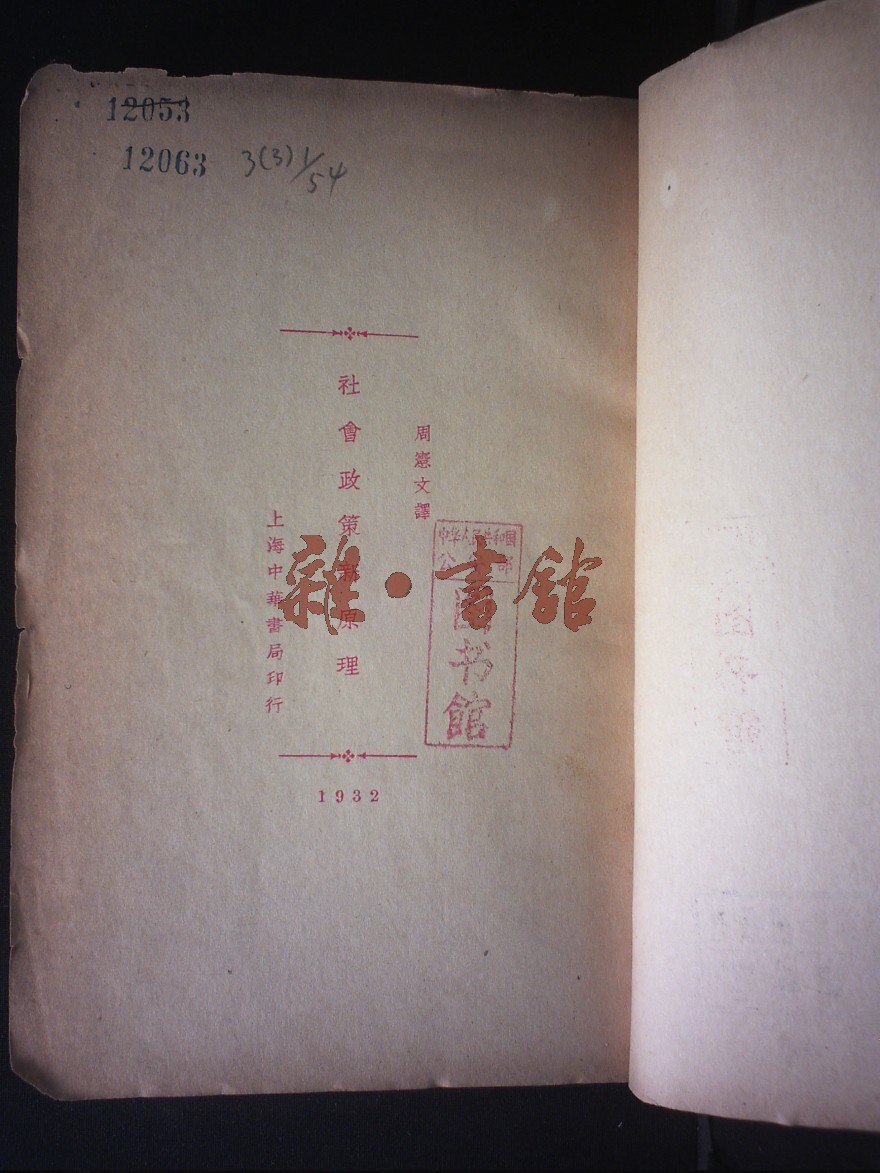 12053
12063 3(3)1/54
周憲文譯
社會政策新原理
上海中華書局印行
1932
中华人民共和国
公 部
图书馆
雜·書館